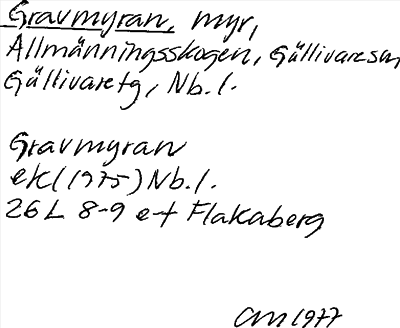 Gravmyran, myr,
Allmänningsskogen, Gällivaresn
Gällivaretg, Nb.l.
Gravmyran
ek(1975)Nb.l.
26L 8-9 e-f Flakaberg
CM 1977